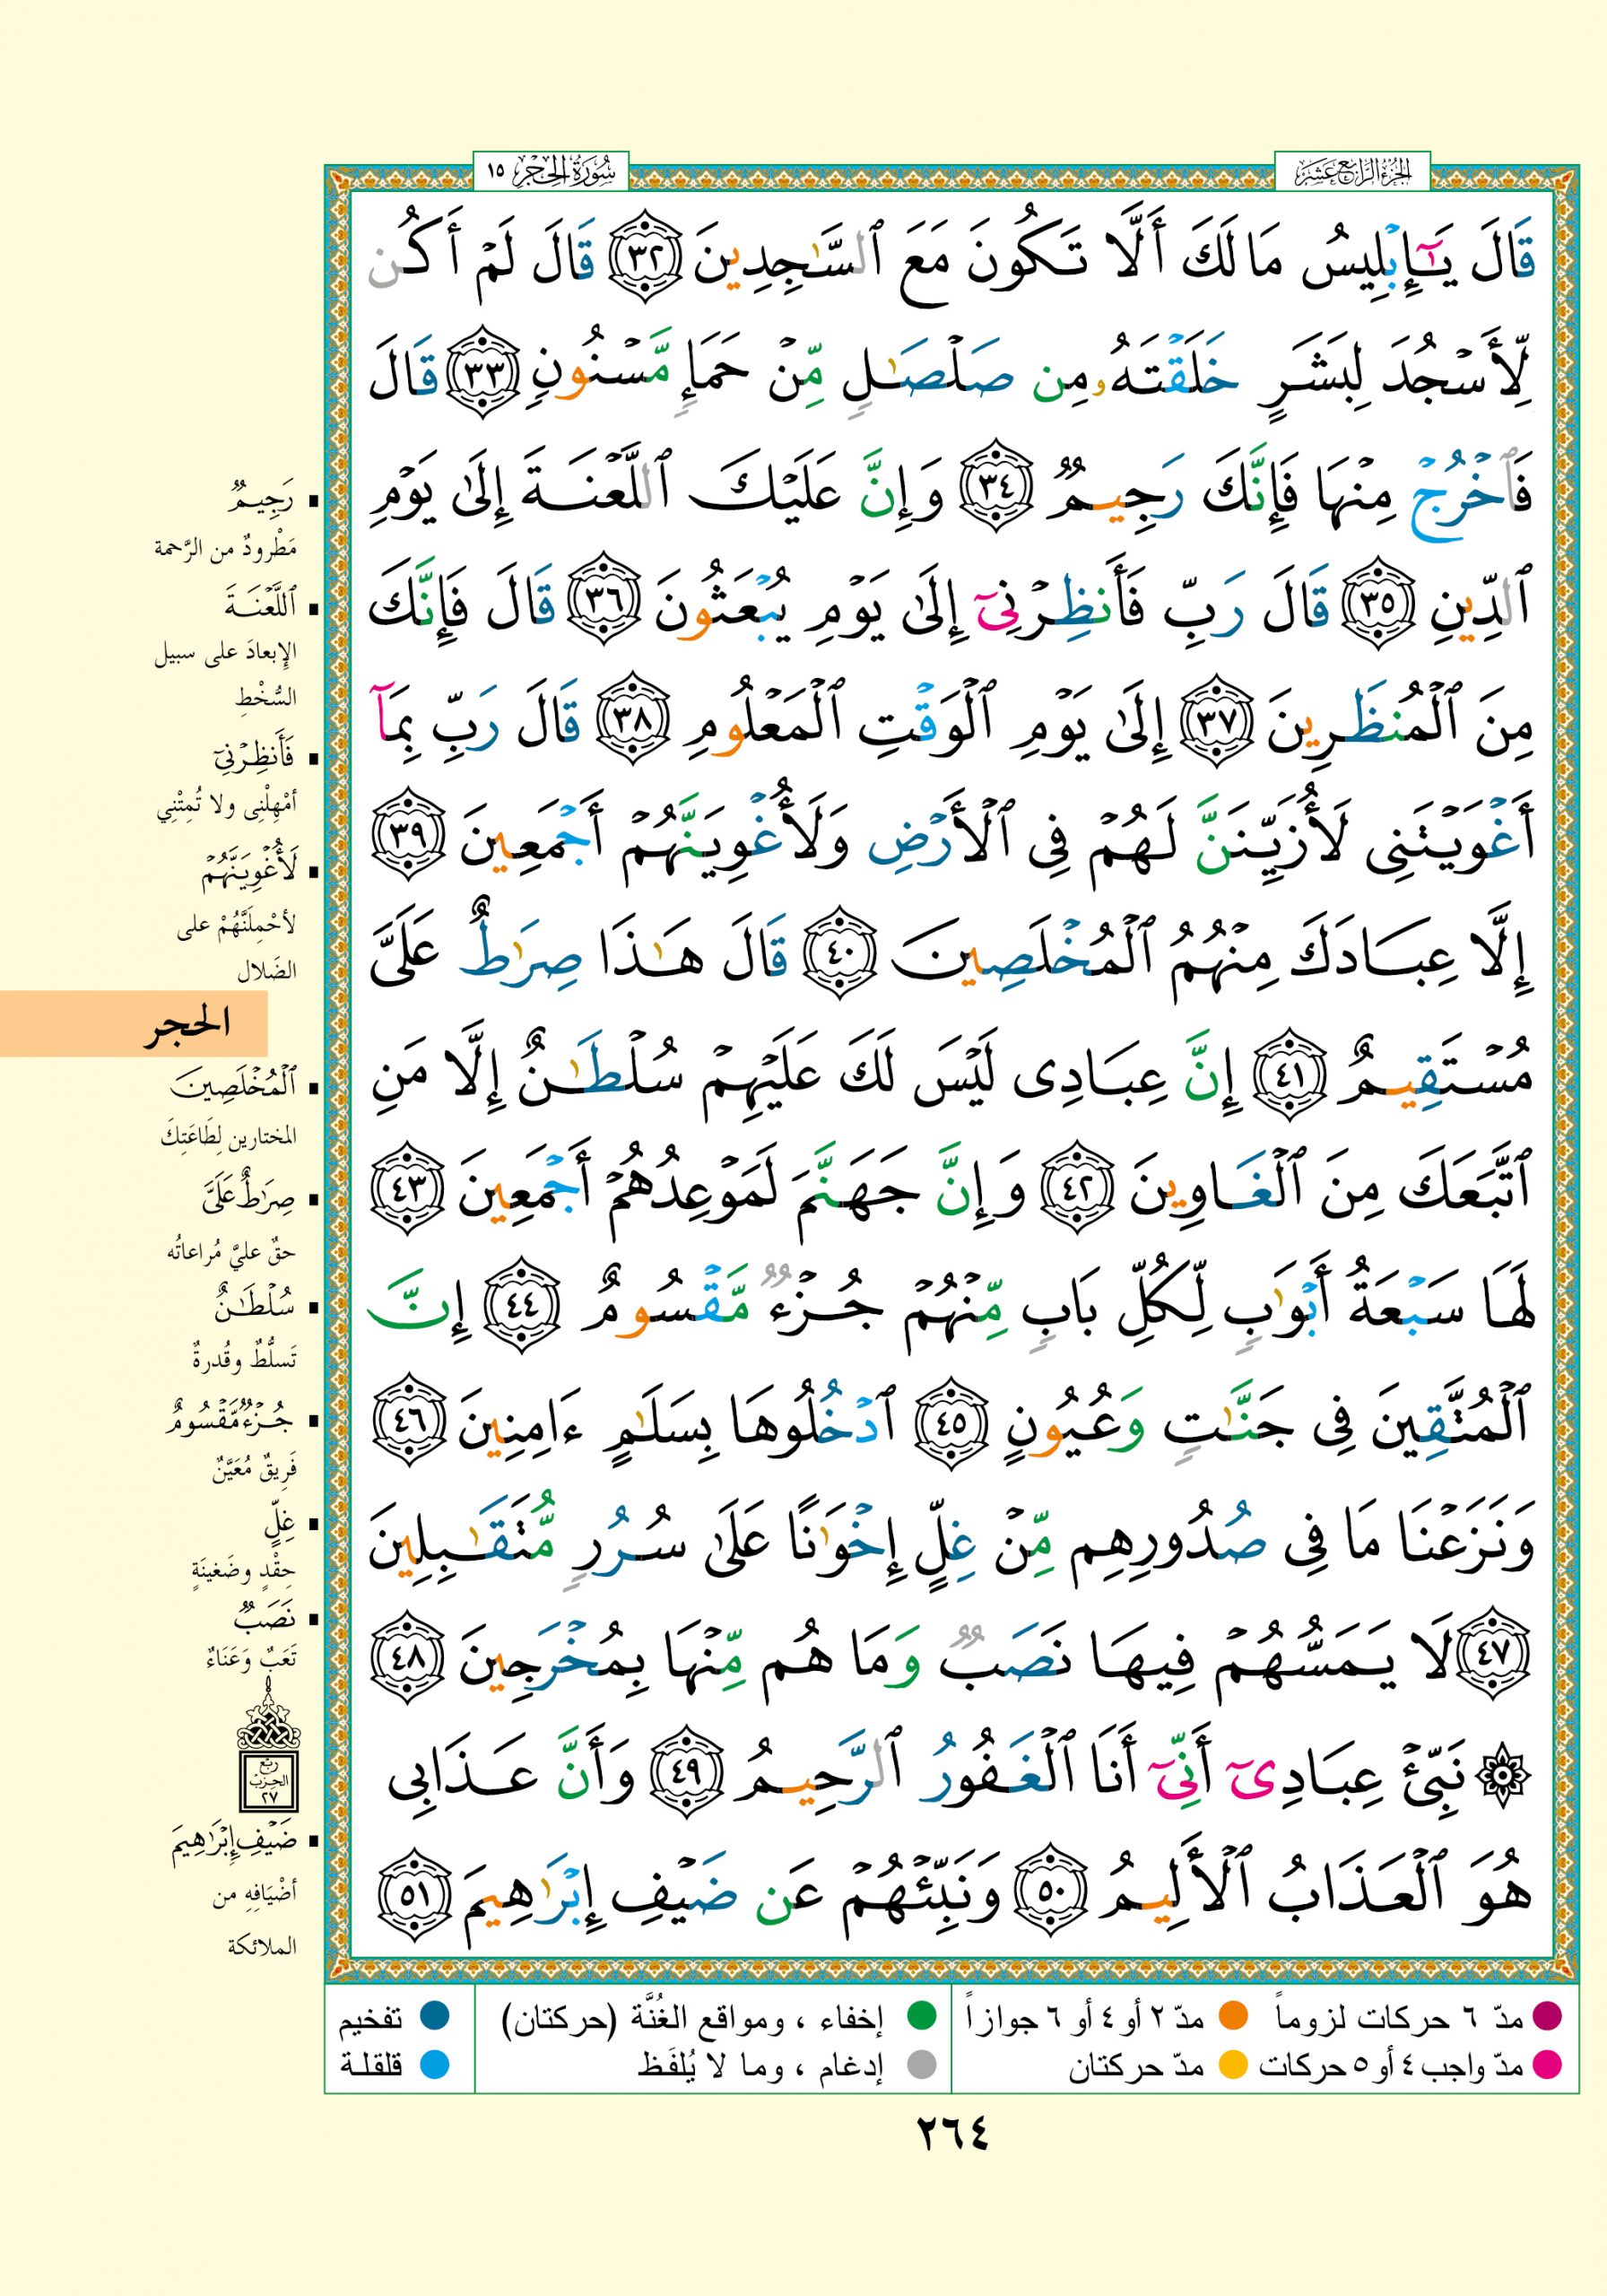 الجزء الرابع عشر
سورة الحجر ١٥
قَالَ يَـٰٓإِبْلِيسُ مَا لَكَ أَلَّا تَكُونَ مَعَ ٱلسَّـٰجِدِينَ ٣٢ قَالَ لَمْ أَكُن
لِّأَسْجُدَ لِبَشَرٍ خَلَقْتَهُۥ مِن صَلْصَـٰلٍ مِّنْ حَمَإٍ مَّسْنُونٍ ٣٣ قَالَ
فَٱخْرُجْ مِنْهَا فَإِنَّكَ رَجِيمٌ ٣٤ وَإِنَّ عَلَيْكَ ٱللَّعْنَةَ إِلَىٰ يَوْمِ
ٱلدِّينِ ٣٥ قَالَ رَبِّ فَأَنظِرْنِىٓ إِلَىٰ يَوْمِ يُبْعَثُونَ ٣٦ قَالَ فَإِنَّكَ
مِنَ ٱلْمُنظَرِينَ ٣٧ إِلَىٰ يَوْمِ ٱلْوَقْتِ ٱلْمَعْلُومِ ٣٨ قَالَ رَبِّ بِمَآ
أَغْوَيْتَنِى لَأُزَيِّنَنَّ لَهُمْ فِى ٱلْأَرْضِ وَلَأُغْوِيَنَّهُمْ أَجْمَعِينَ ٣٩
إِلَّا عِبَادَكَ مِنْهُمُ ٱلْمُخْلَصِينَ ٤٠ قَالَ هَـٰذَا صِرَٰطٌ عَلَىَّ
مُسْتَقِيمٌ ٤١ إِنَّ عِبَادِى لَيْسَ لَكَ عَلَيْهِمْ سُلْطَـٰنٌ إِلَّا مَنِ
ٱتَّبَعَكَ مِنَ ٱلْغَاوِينَ ٤٢ وَإِنَّ جَهَنَّمَ لَمَوْعِدُهُمْ أَجْمَعِينَ ٤٣
لَهَا سَبْعَةُ أَبْوَٰبٍ لِّكُلِّ بَابٍ مِّنْهُمْ جُزْءٌ مَّقْسُومٌ ٤٤ إِنَّ
ٱلْمُتَّقِينَ فِى جَنَّـٰتٍ وَعُيُونٍ ٤٥ ٱدْخُلُوهَا بِسَلَـٰمٍ ءَامِنِينَ ٤٦
وَنَزَعْنَا مَا فِى صُدُورِهِم مِّنْ غِلٍّ إِخْوَٰنًا عَلَىٰ سُرُرٍ مُّتَقَـٰبِلِينَ
٤٧ لَا يَمَسُّهُمْ فِيهَا نَصَبٌ وَمَا هُم مِّنْهَا بِمُخْرَجِينَ ٤٨
۞ نَبِّئْ عِبَادِىٓ أَنِّىٓ أَنَا ٱلْغَفُورُ ٱلرَّحِيمُ ٤٩ وَأَنَّ عَذَابِى
هُوَ ٱلْعَذَابُ ٱلْأَلِيمُ ٥٠ وَنَبِّئْهُمْ عَن ضَيْفِ إِبْرَٰهِيمَ ٥١
رَجِيمٌ
مَطْرودٌ من الرَّحمة
ٱللَّعْنَةَ
الإبعادَ على سبيل
السُّخْطِ
فَأَنظِرْنِىٓ
أمْهِلْنِى ولا تُمِتْنِي
لَأُغْوِيَنَّهُمْ
لأحْمِلَنَّهُمْ على
الضَلال
الحجر
ٱلْمُخْلَصِينَ
المختارين لِطَاعَتِكَ
صِرَٰطٌ عَلَىَّ
حقٌ عليَّ مُراعاتُه
سُلْطَـٰنٌ
تَسلُّطٌ وقُدرةٌ
جُزْءٌ مَّقْسُومٌ
فَرِيقٌ مُعَيَّنٌ
غِلٍّ
حِقْدٍ وضَغينَةٍ
نَصَبٌ
تَعَبٌ وَعَنَاءٌ
ربع
الحزب
٢٧
ضَيْفِ إِبْرَٰهِيمَ
أضْيَافِهِ من
الملائكة
مدّ ٦ حركات لزوماً مدّ ٢ أو ٤ أو ٦ جوازاً إخفاء ، ومواقع الغُنَّة (حركتان) تفخيم
مدّ واجب ٤ أو ٥ حركات مدّ حركتان إدغام ، وما لا يُلفَظ قلقلة
٢٦٤